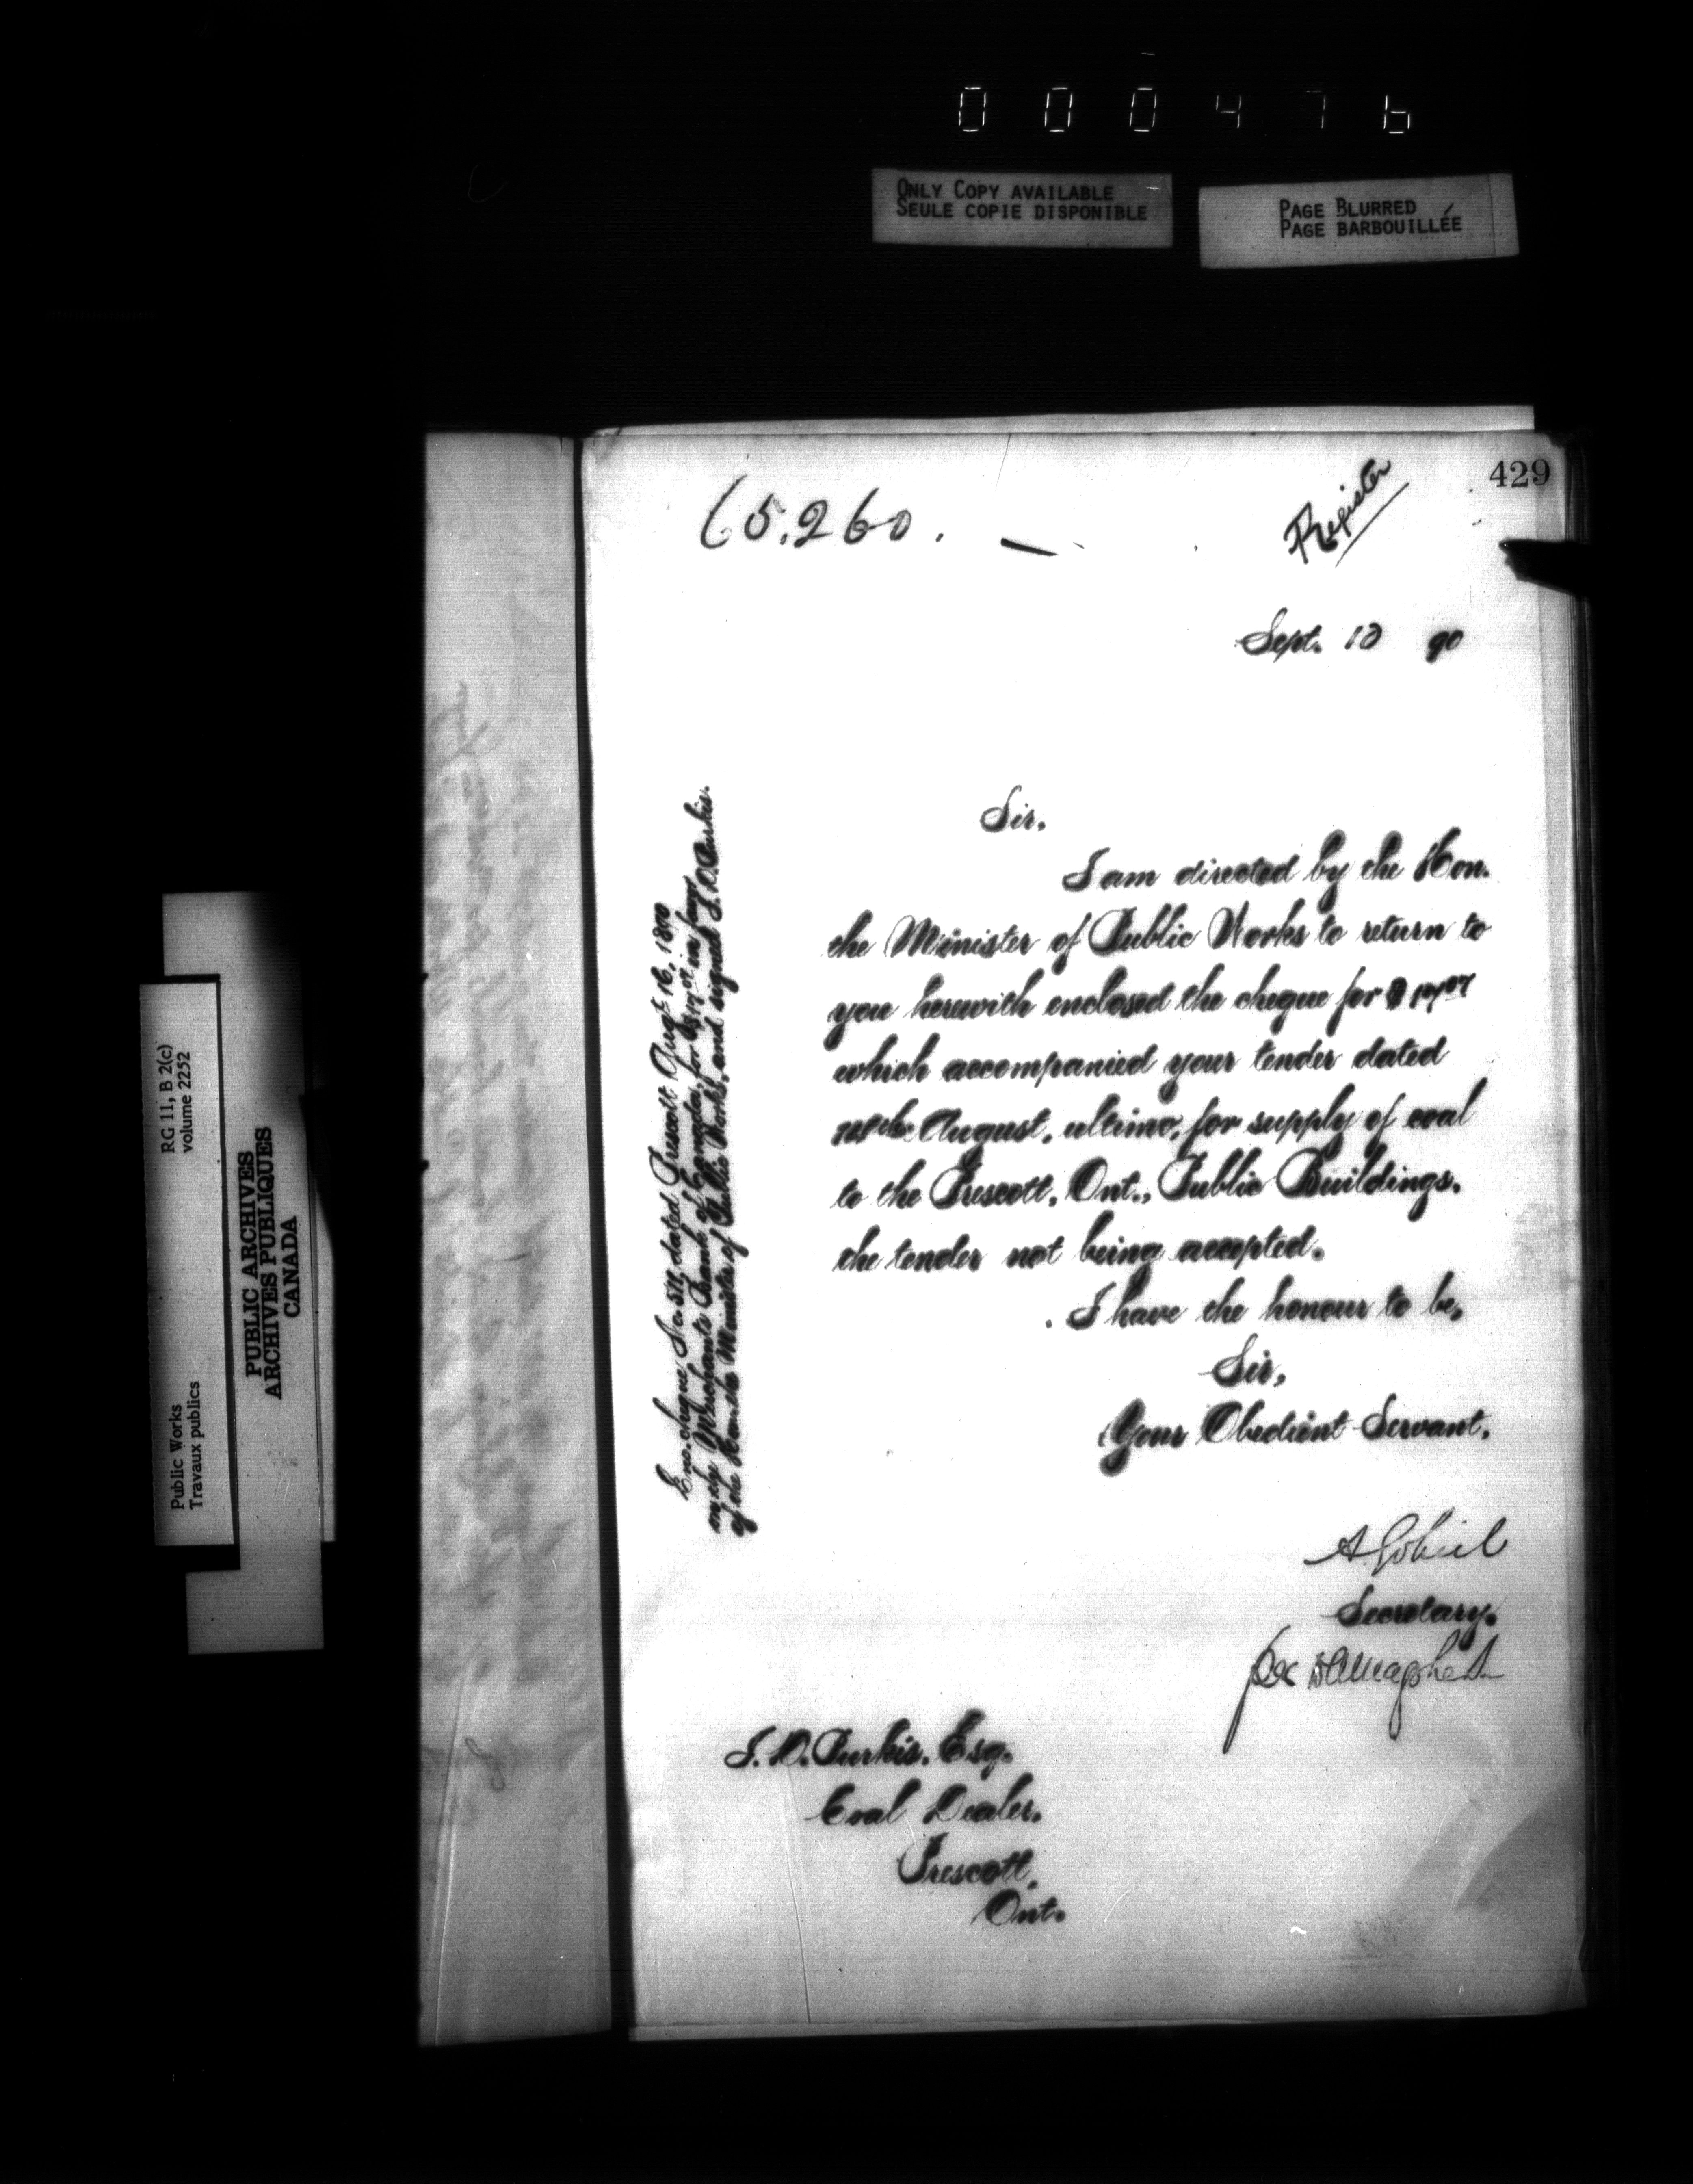 000476
ONLY COPY AVAILABLE
SEULE COPIE DISPONIBLE
PAGE BLURRED
PAGE BARBOUILLÉE
429
65.260.
Register
Sept. 10 90
Sir.
I am directed by the Hon.
the Minister of Public Works to return to
you herewith enclosed the cheque for $
which accompanied your tender dated
August, ultimo, for supply of coal
to the Prescott, Ont., Public Buildings.
the tender not being accepted.
I have the honour to be,
Sir,
Your Obedient Servant.
A Gobeil
Secretary.
J. D. Purkis. Esq.
Coal Dealer.
Prescott,
Ont.
Enc. cheque dated Prescott Augt. 16, 1890
on the Merchants Bank of Canada, for in favor
of the Hon. the Minister of Public Works, and signed J. D. Purkis.
RG 11, B 2(c)
volume 2252
Public Works
Travaux publics
PUBLIC ARCHIVES
ARCHIVES PUBLIQUES
CANADA